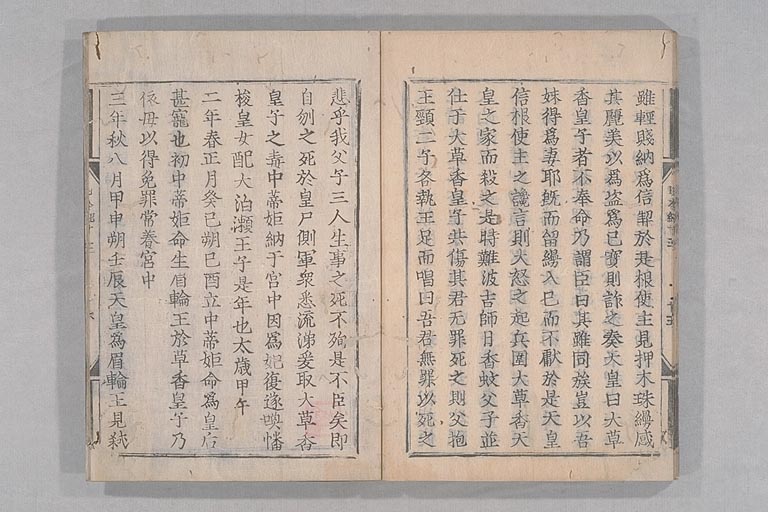 雖輕賤納爲信契於是根使主見押木珠縵感
其麗美以爲盜爲己寶則詐之奏天皇曰大草
香皇子者不奉命乃謂臣曰其雖同族豈以吾
妹得爲妻耶既而留縵入己而不獻於是天皇
信根使主之讒言則大怒之起兵圍大草香天
皇之家而殺之是時難波吉師日香蚊父子並
仕于大草香皇子共傷其君无罪死之則父抱
王頸二子各執王足而唱曰吾君無罪以死之
悲乎我父子三人生事之死不殉是不臣矣即
自刎之死於皇尸側軍衆悉流涕爰取大草香
皇子之妻中蒂姬納于宮中因爲妃復遂喚幡
梭皇女配大泊瀬王子是年也太歲甲午
二年春正月癸巳朔己酉立中蒂姬命爲皇后
甚寵也初中蒂姬命生眉輪王於草香皇子乃
依母以得免罪常養宮中
三年秋八月甲申朔壬辰天皇爲眉輪王見弑